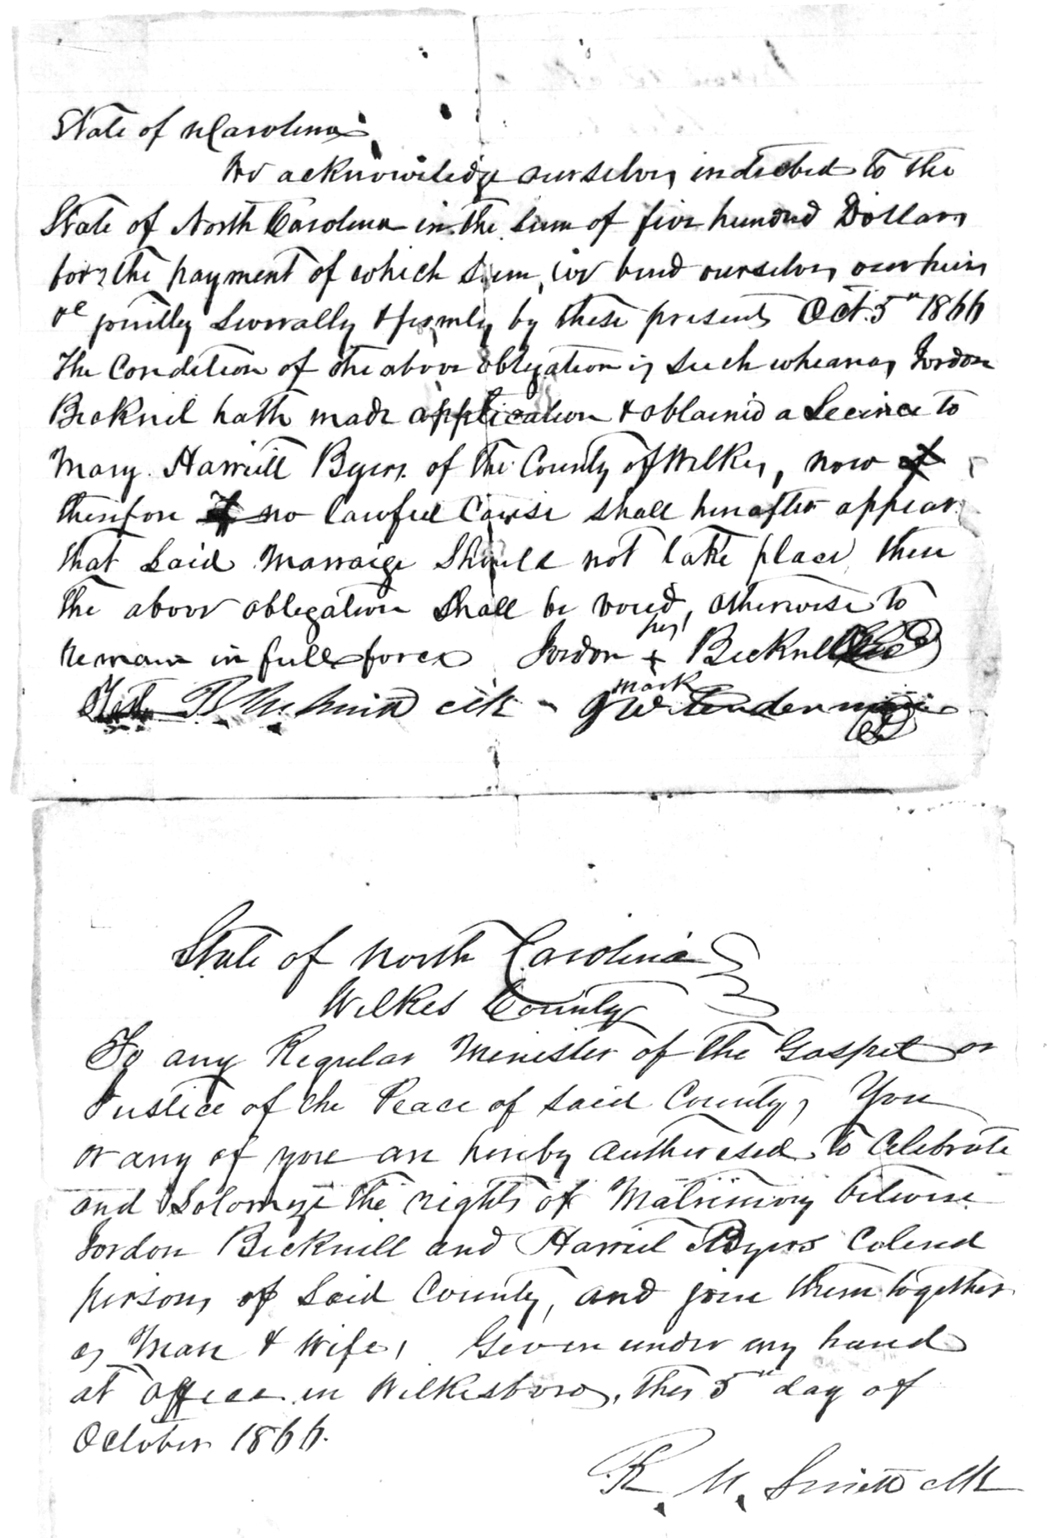 State of N Carolina
We acknowledge ourselves indebted to the
State of North Carolina in the sum of five hundred Dollars
for the payment of which sum, we bind ourselves our heirs
&c jointly severally & firmly by these presents Oct. 5th 1866
The Condition of the above obligation is such wheareas Jordon
Bicknil hath made application & obtained a Licince to
Mary Harriett Byers of the County of Wilkes, now
therefore if no lawful Cause shall hereafter appear
that said Marraige should not take place, then
the above obligation shall be void, otherwise to
remain in full force Jordon his x mark Bicknell
Test R. M. Smith clk
State of North Carolina
Wilkes County
To any Regular Minister of the Gospel or
Justice of the Peace of said County, You
or any of you are hereby authorised to Celebrate
and Solomize the rights of Matrimony between
Jordon Bicknill and Harriet Byers Colered
persons of said County, and join them together
as Man & Wife, Given under my hand
at office in Wilkesboro, this 5th day of
October 1866.
R. M. Smith clk